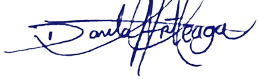 Danila Arteaga